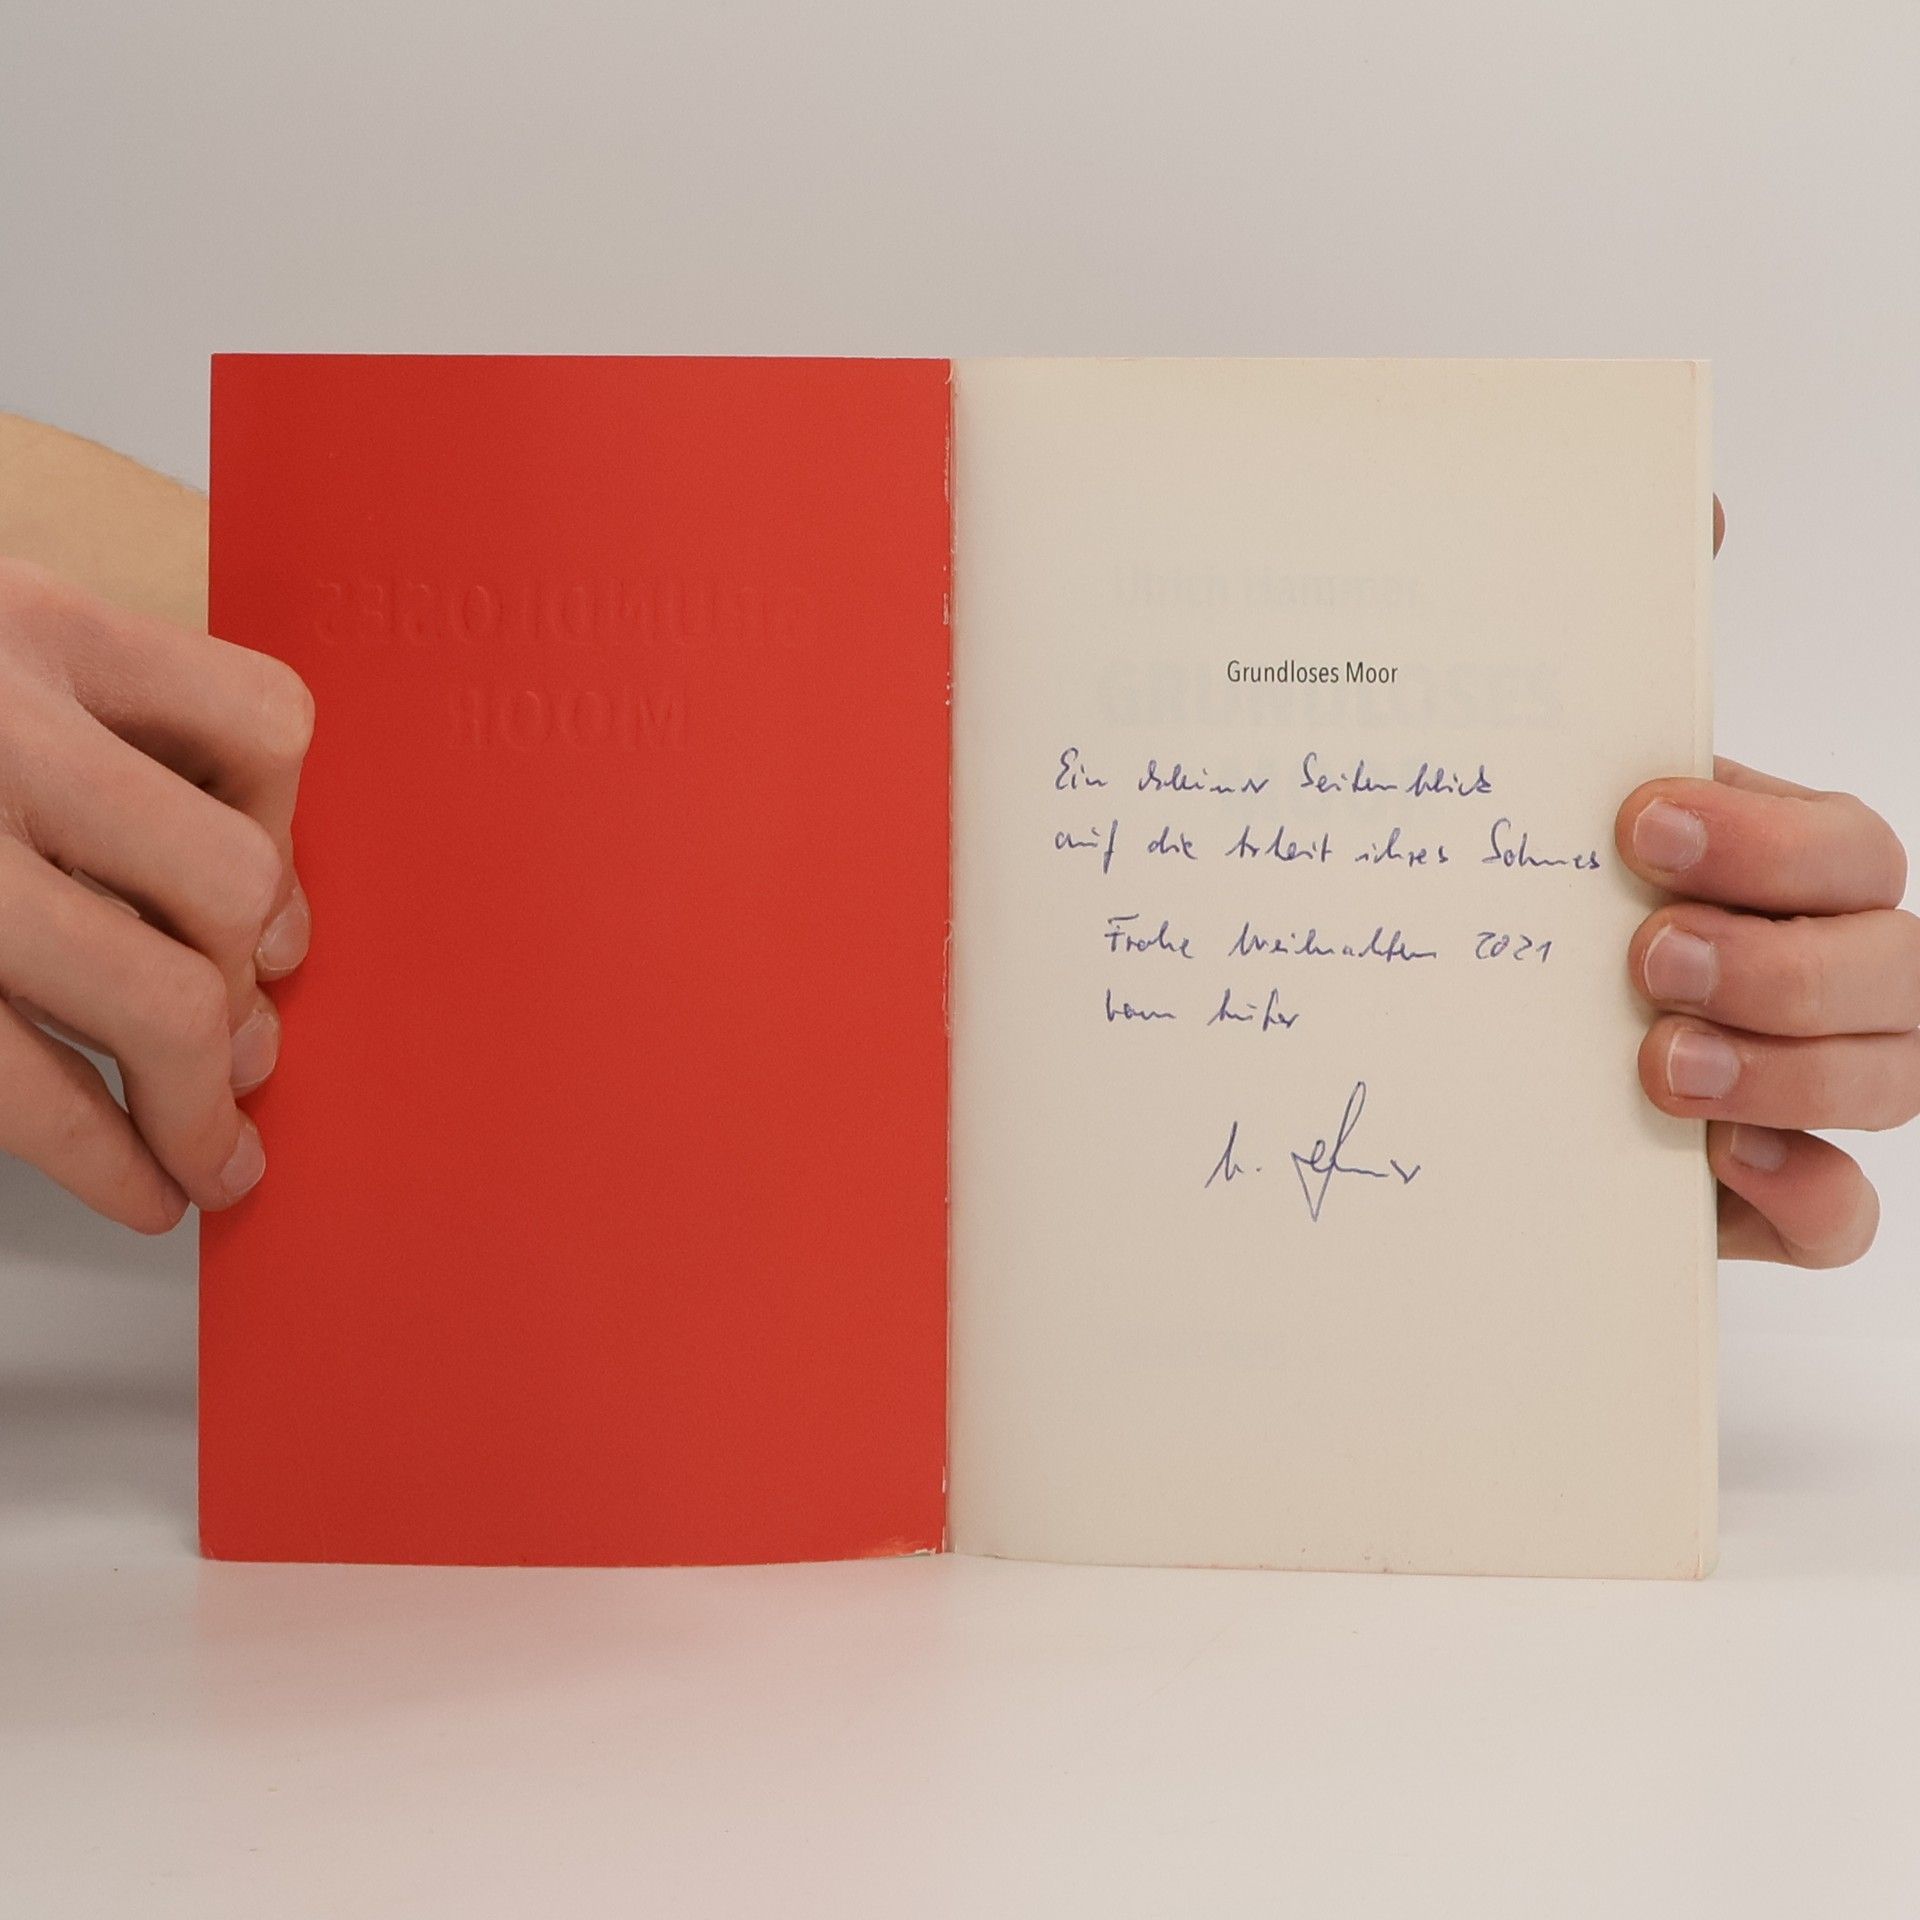 GRUNDLOSES
MOOR
Grundloses Moor
Ein kleiner Seitenblick
auf die Arbeit ihres Sohnes
Frohe Weihnachten 2021
vom